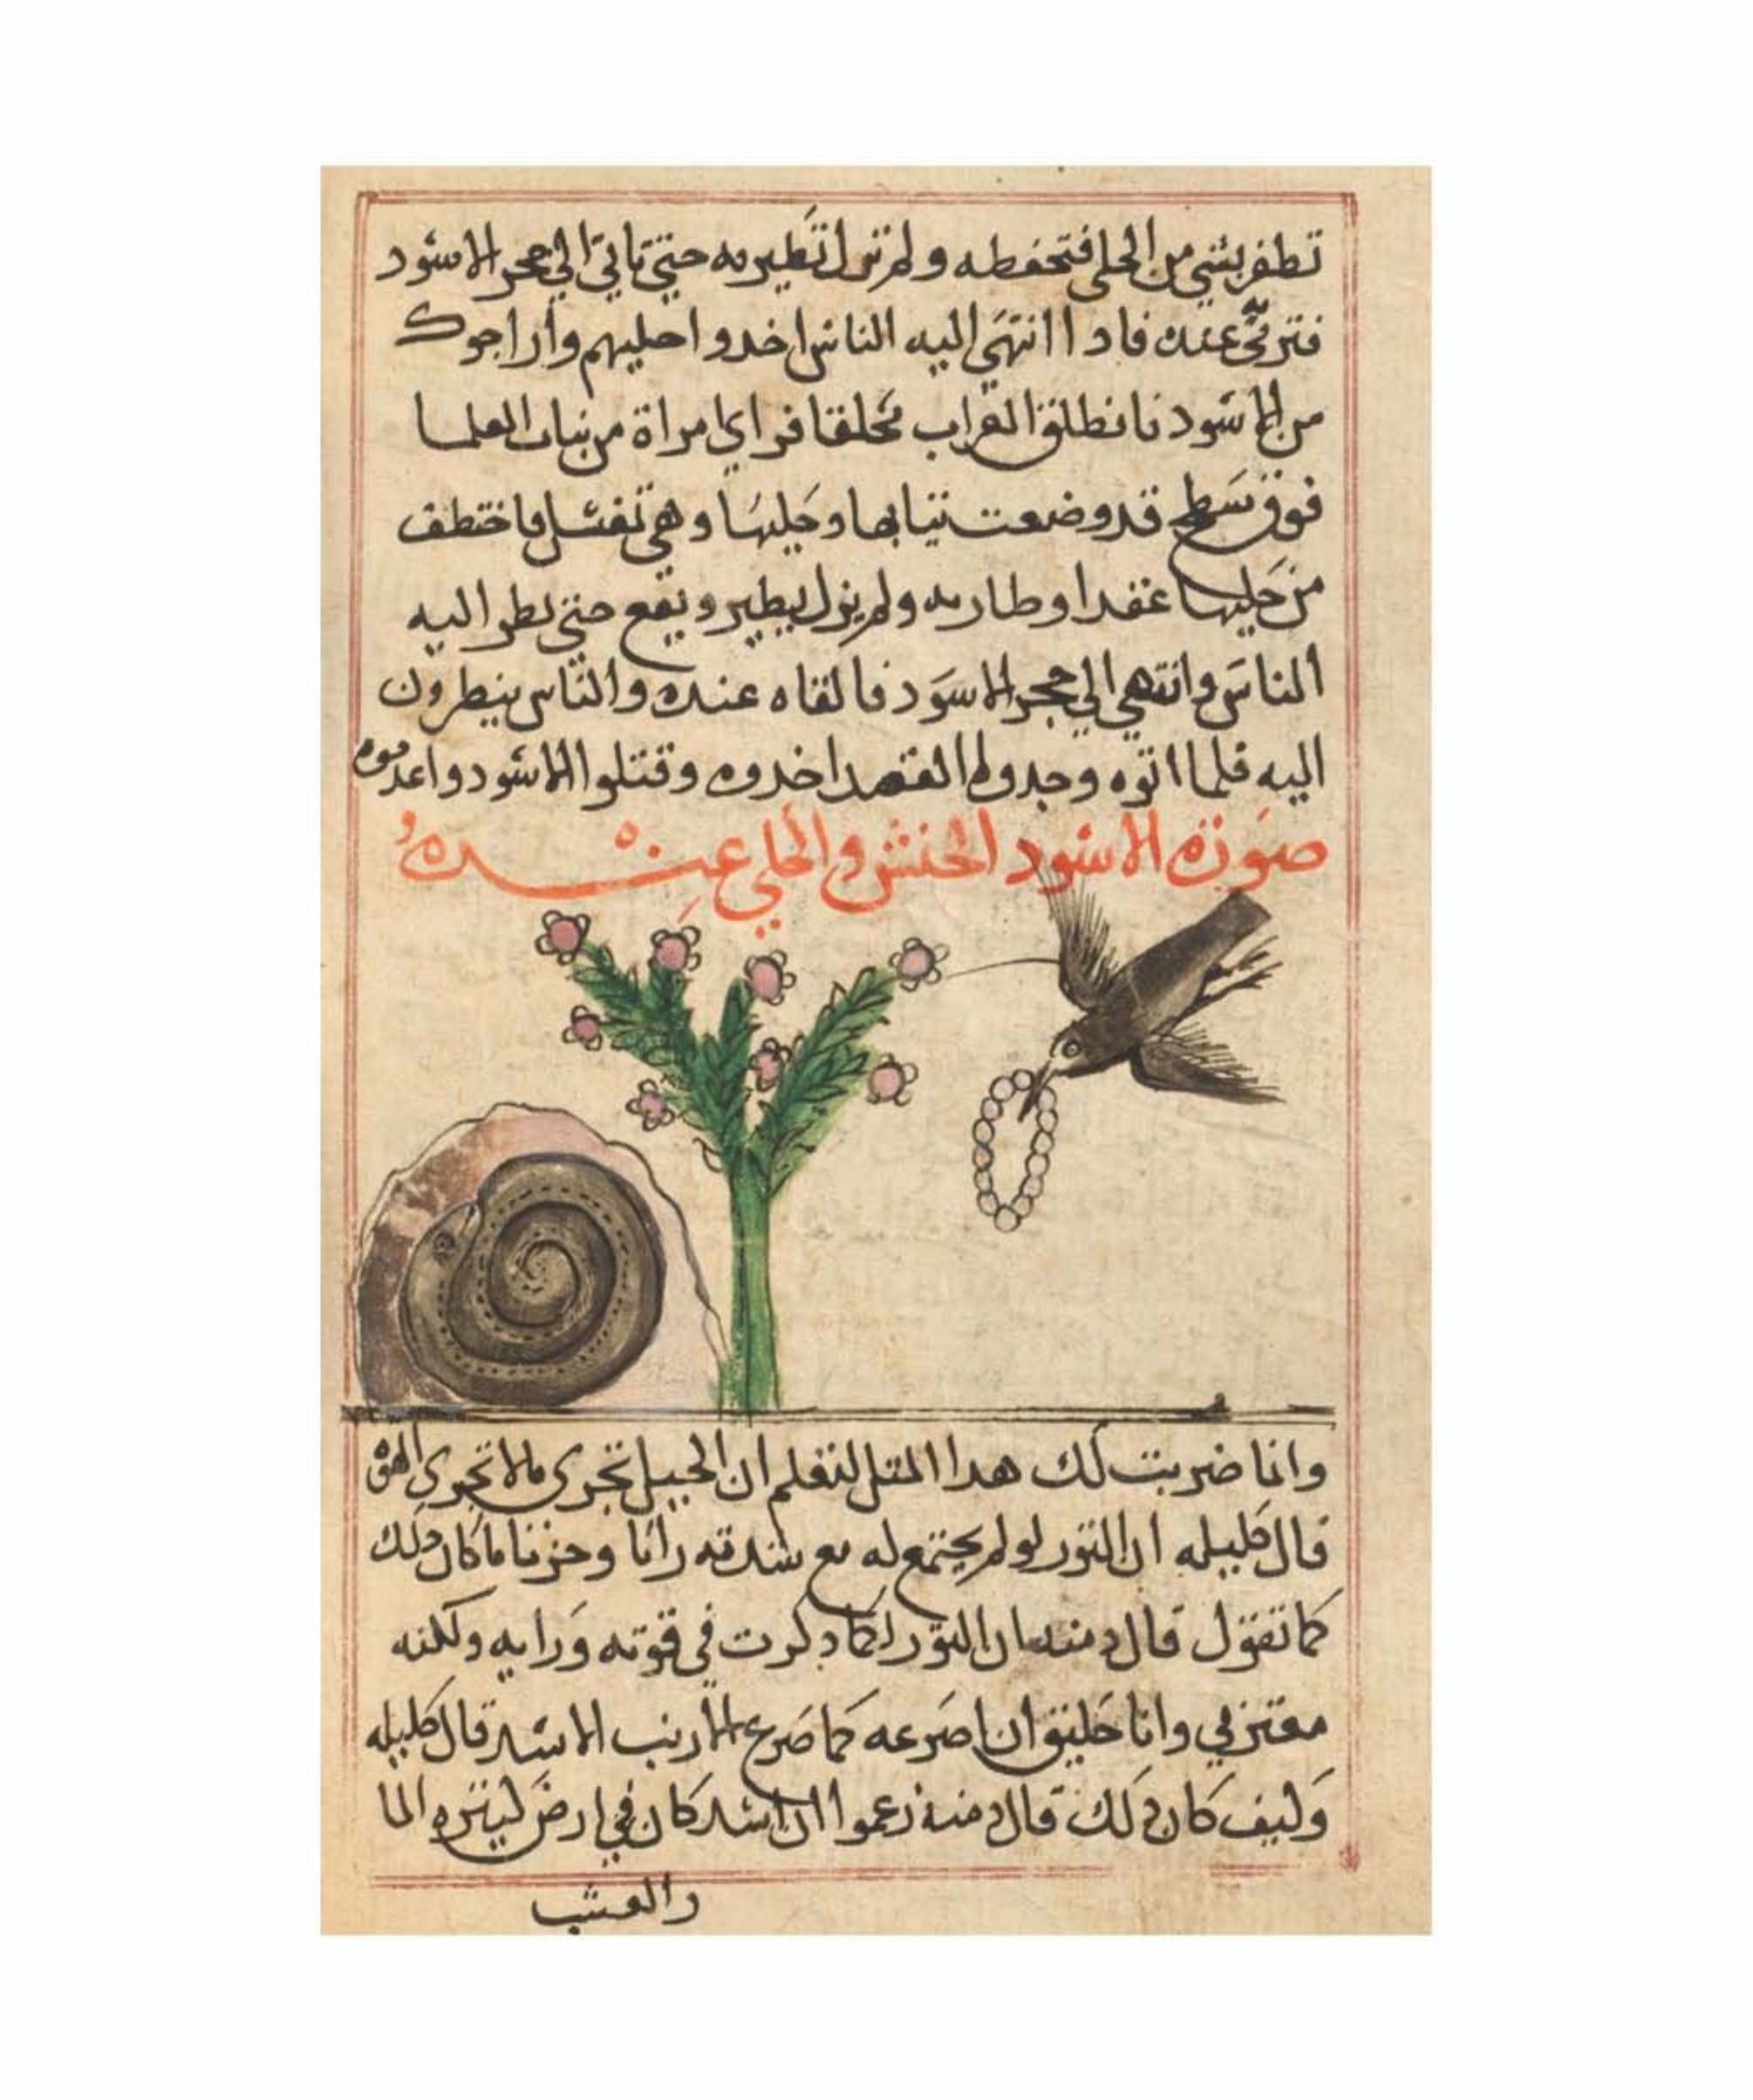 تظفر بشي من الحلي فتخطفه ولم تزل تطير به حتي تاتي الي جحر الاسود
فترمي به عنده فادا انتهي اليه الناس اخدوا حليهم واراحوك
من الاسود فانطلق الغراب محلقا فراي امراة من بنات العلما
فوق سطح قد وضعت تيابها وحليها وهي تغتسل فاختطف
من حليها عقدا وطار به ولم يزل يطير ويقع حتي نظر اليه
الناس وانتهي الي جحر الاسود فالقاه عنده والناس ينظرون
اليه فلما اتوه وجدوا العقد اخدوه وقتلوا الاسود واعدموه
صورة الاسود الحنش والحلي عنده
وانما ضربت لك هدا المتل لتعلم ان الحيل تجري مالا تجري القوة
قال كليله ان التور لو لم يجتمع له مع شدته رايا وحزما ما كان دلك
كما تقول قال دمنه ان التور لكما دكرت في قوته ورايه ولكنه
مغتر بي وانا خليق ان اصرعه كما صرع الارنب الاسد قال كليله
وكيف كان دلك قال دمنه زعموا ان اسد كان في ارض كتيره الما
والعشب